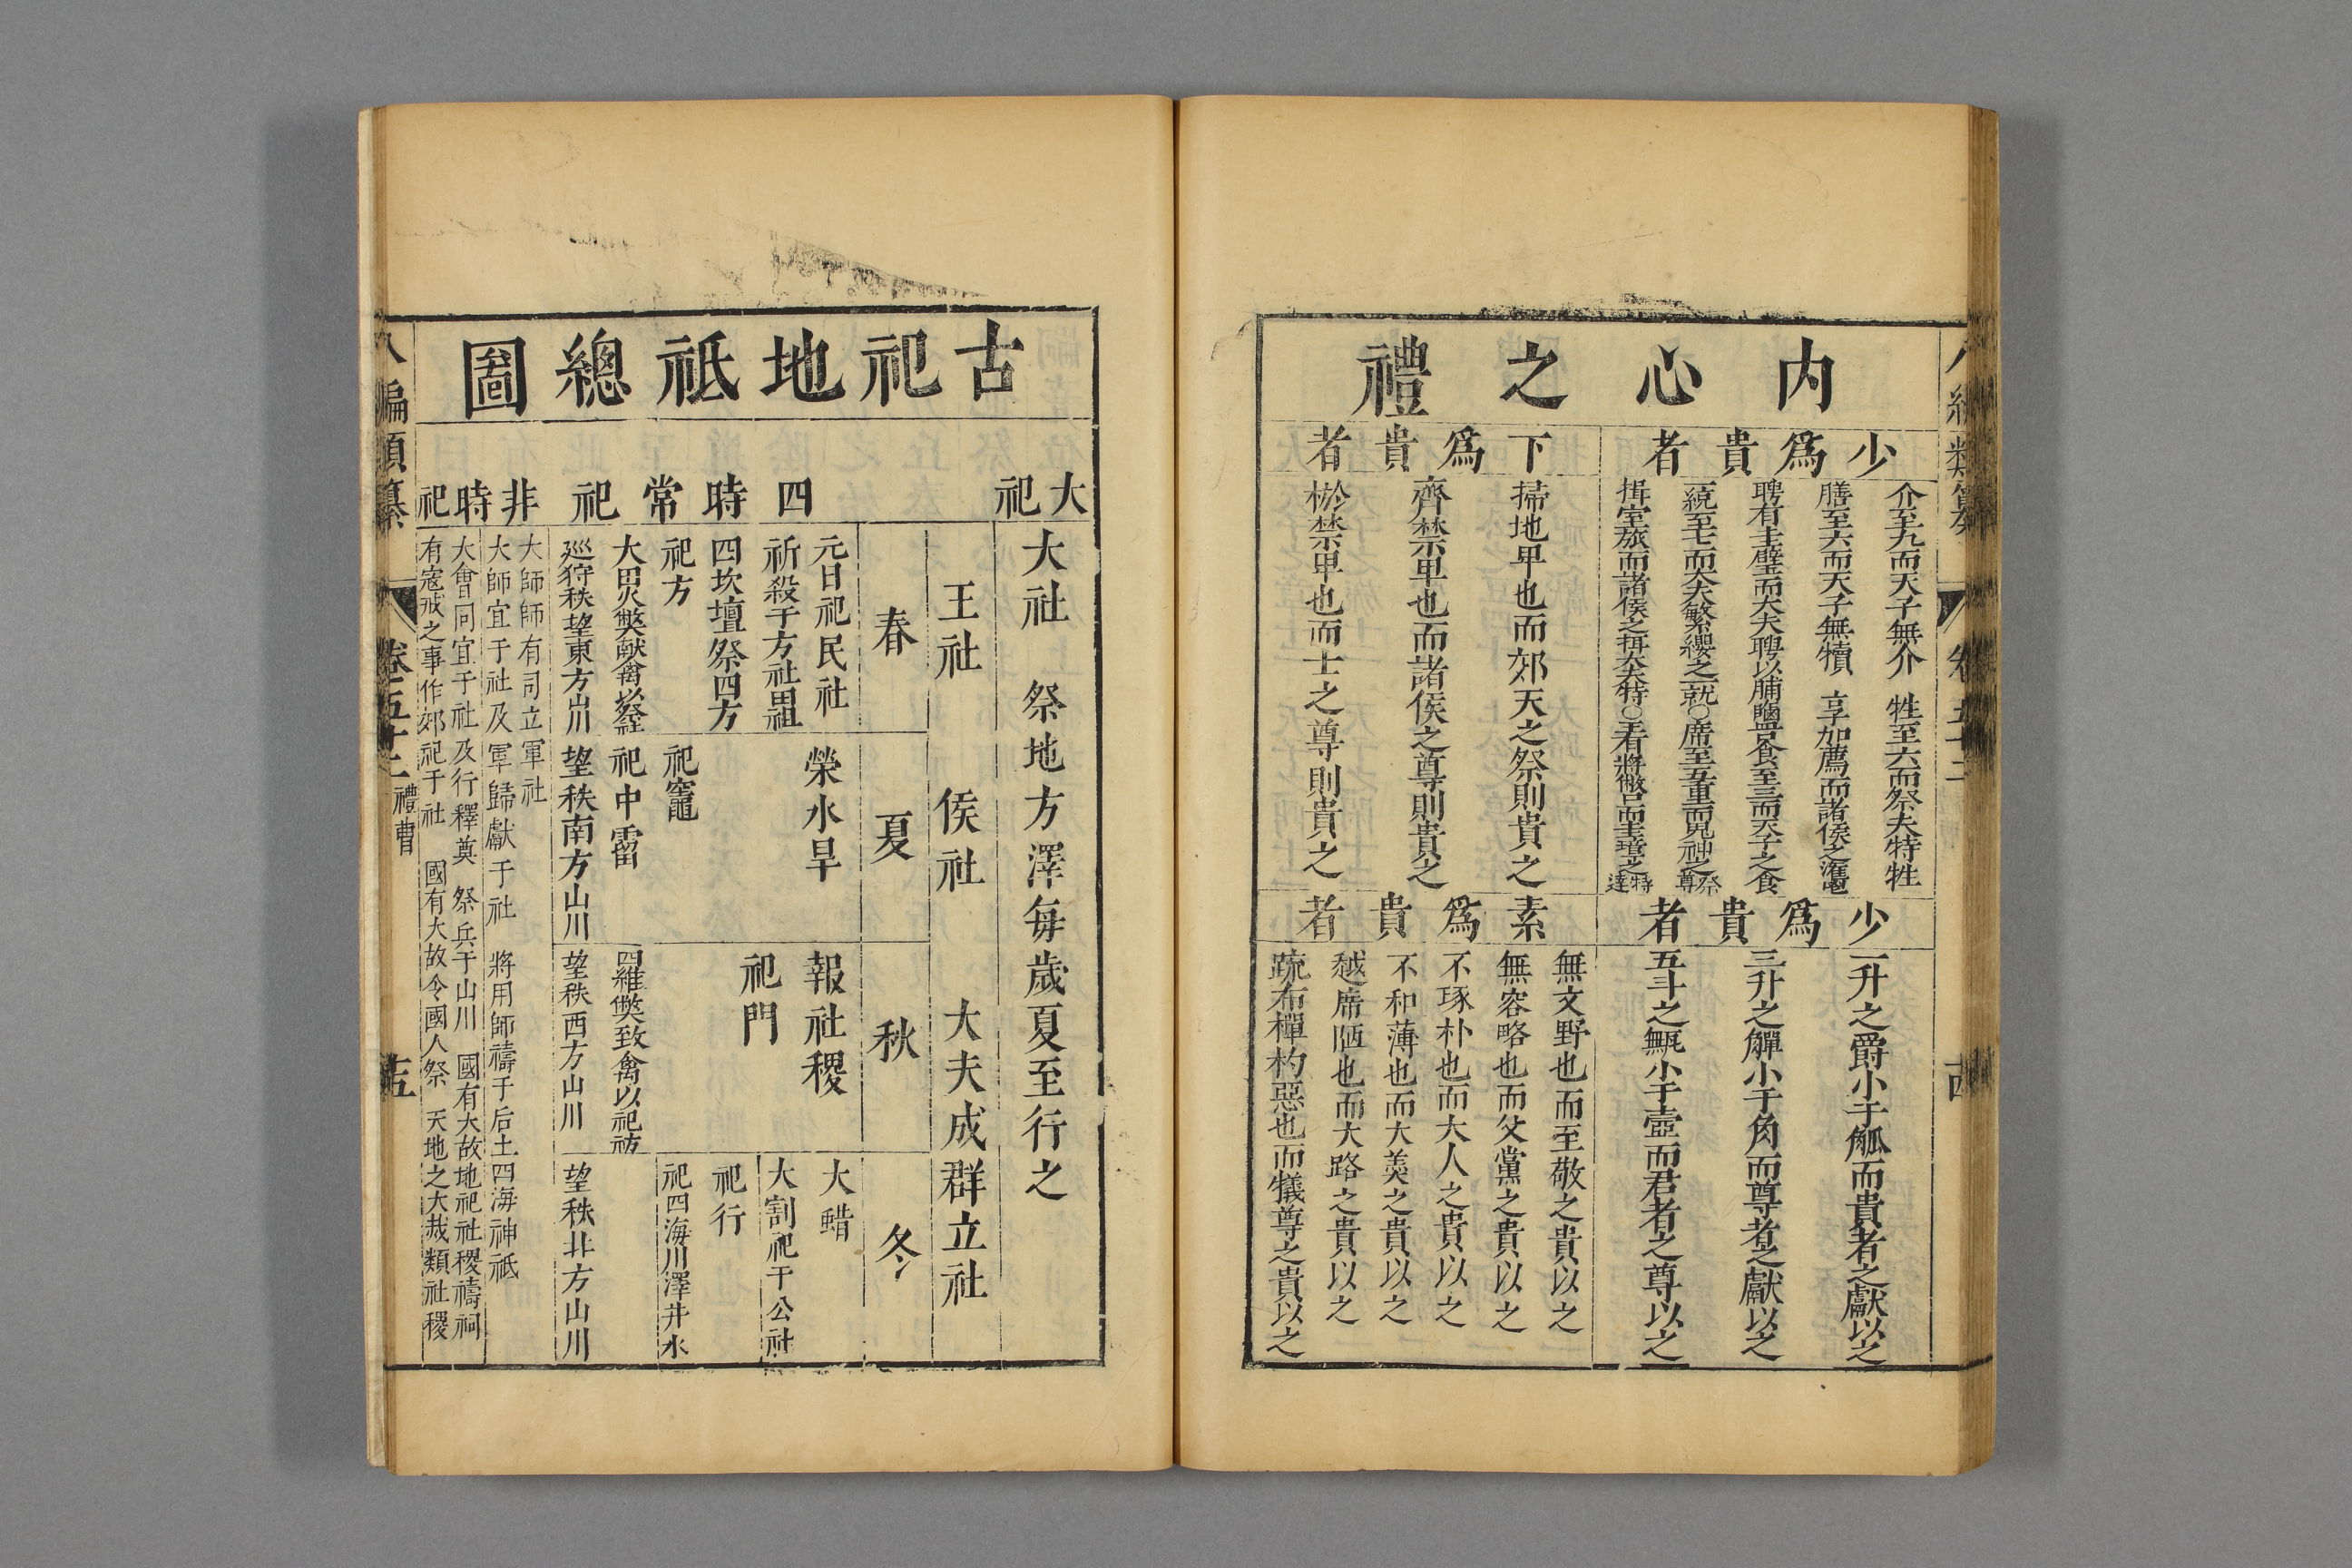 内心之禮
少爲貴者
介至九而天子無介　牲至六而祭天特牲
膳至六而天子無犢　享加薦而諸侯之灌鬯
聘有圭璧而大夫聘以脯醢○食至三而天子之食
一就至七而大夫繁纓之一就○席至五重而鬼神之祭尊
揖室旅而諸侯之揖大夫特○玉看將幣而圭璋之特達
下爲貴者
掃地卑也而郊天之祭則貴之
齊禁卑也而諸侯之尊則貴之
棜禁卑也而士之尊則貴之
少爲貴者
一升之爵小于觚而貴者之獻以之
三升之觶小于角而尊者之獻以之
五斗之甒小于壺而君者之尊以之
素爲貴者
無文野也而至敬之貴以之
無容略也而父黨之貴以之
不琢朴也而大人之貴以之
不和薄也而大羹之貴以之
越席陋也而大路之貴以之
疏布樿杓惡也而犧尊之貴以之
八編類纂　卷五十二
古祀地祗總圖
大祀
大社　祭地方澤每歲夏至行之
王社　侯社　大夫成群立社
四時常祀
春
元日祀民社
祈穀于方社田祖
四坎壇祭四方
祀方
大田火弊献禽以祭社
巡狩秩望東方山川
夏
榮水旱
祀竈
祀中霤
望秩南方山川
秋
報社稷
祀門
羅獘致禽以祀祊
望秩西方山川
冬
大蜡
大割祀于公社
祀行
祀四海川澤井水
望秩北方山川
非時祀
大師師有司立軍社
大師宜于社及軍歸獻于社　將用師禱于后土四海神祇
大會同宜于社及行釋奠　祭兵于山川　國有大故地祀社稷禱祠
有寇戒之事作郊祀于社　國有大故令國人祭　天地之大烖類社稷
八編類纂　卷五十二　禮曹　十五